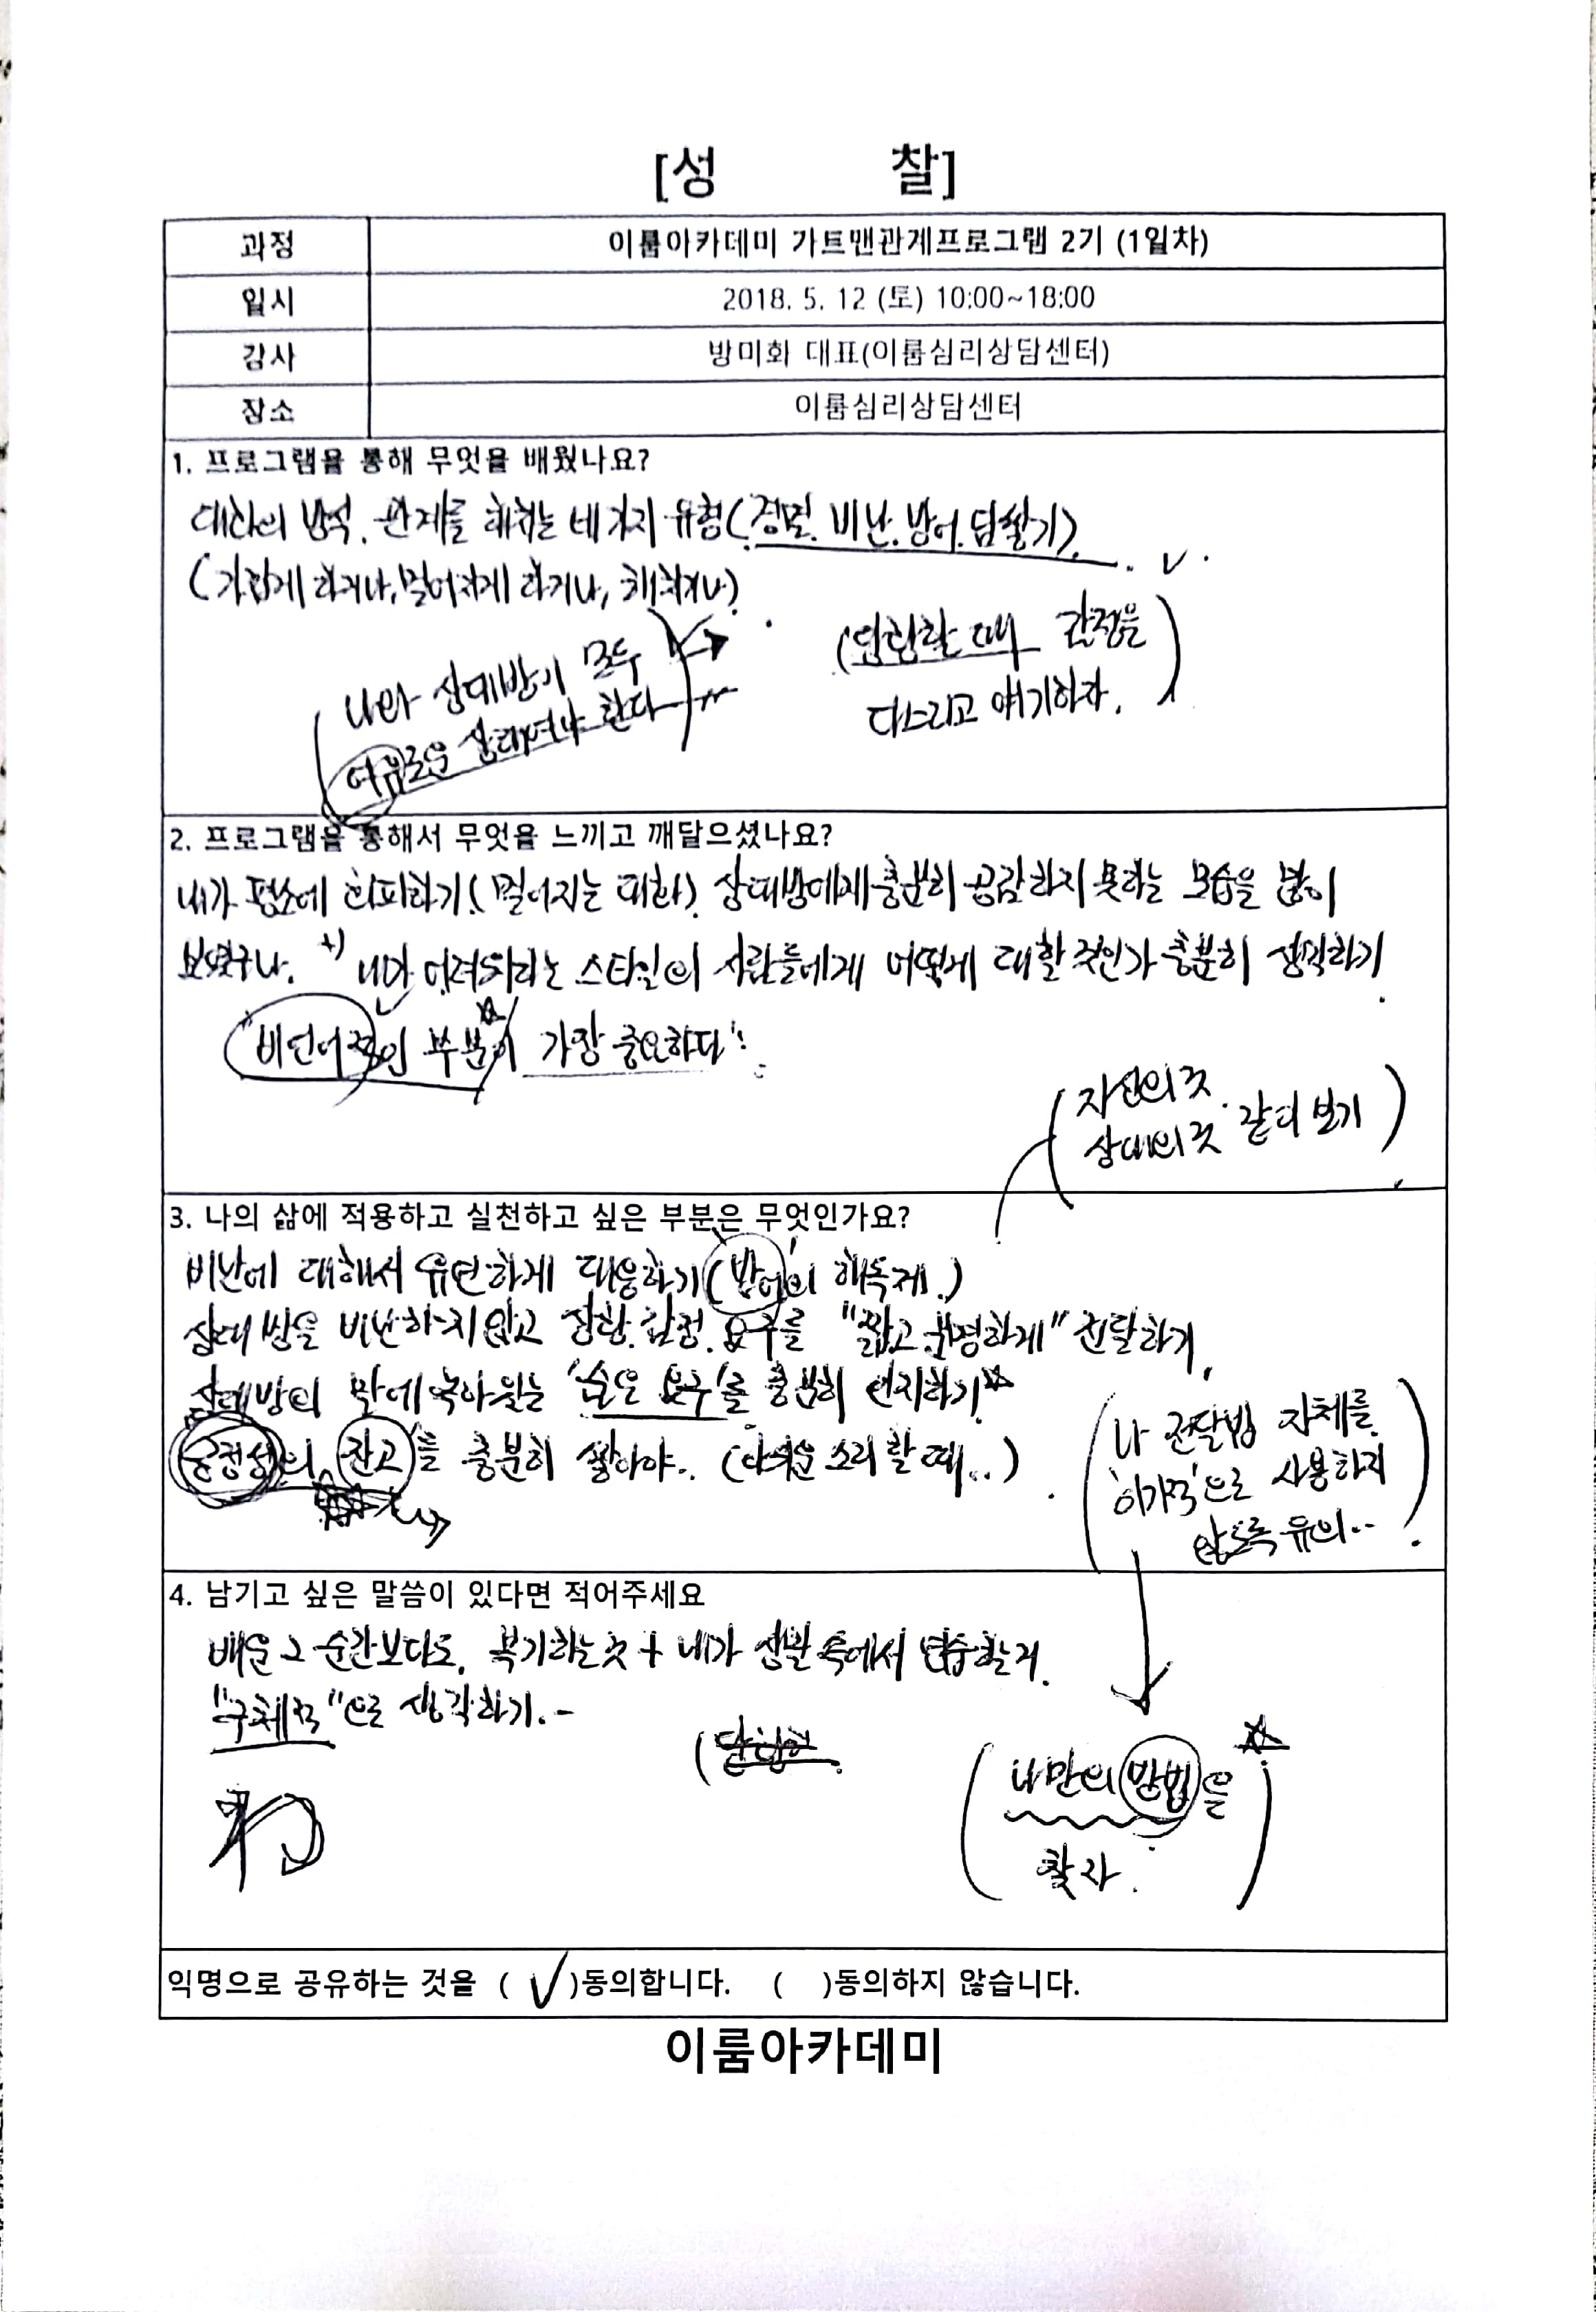 [성 찰]
과정 이룸아카데미 가트맨관계프로그램 2기 (1일차)
일시 2018. 5. 12 (토) 10:00~18:00
강사 방미화 대표(이룸심리상담센터)
장소 이룸심리상담센터
1. 프로그램을 통해 무엇을 배웠나요?
대화의 방식. 관계를 해치는 네가지 유형(경멸. 비난. 방어. 담쌓기).
(가깝게 하거나, 멀어지게 하거나, 해치거나)
나와 상대방이 모두
여유로운 상태여야 한다
감정을
다스리고 얘기하자.
2. 프로그램을 통해서 무엇을 느끼고 깨달으셨나요?
내가 평소에 회피하기(멀어지는 대화). 상대방에게 충분히 공감하지 못하는 모습을 많이
보였구나. +) 내가 어려워하는 스타일의 사람들에게 어떻게 대할 것인가 충분히 생각하기.
"비언어적인 부분이 가장 중요하다".
(자신의 것.
상대의 것 같이 보기)
3. 나의 삶에 적용하고 실천하고 싶은 부분은 무엇인가요?
비난에 대해서 유연하게 대응하기(방어의 해독제.)
상대방을 비난하지 않고 상황. 감정. 요구를 "짧고 분명하게" 전달하기.
상대방의 말에 녹아있는 '숨은 요구'를 충분히 인지하기
긍정성의 잔고를 충분히 쌓아야.. (아쉬운 소리 할 때..)
(나 전달법 자체를
'이기적'으로 사용하지
않도록 유의..)
4. 남기고 싶은 말씀이 있다면 적어주세요
배운 그 순간보다도, 복기하는것 + 내가 생활 속에서 연습할 것.
"구체적"으로 생각하기.-
(나만의 방법을
찾자.)
익명으로 공유하는 것을 ( ✓ )동의합니다. ( )동의하지 않습니다.
이룸아카데미